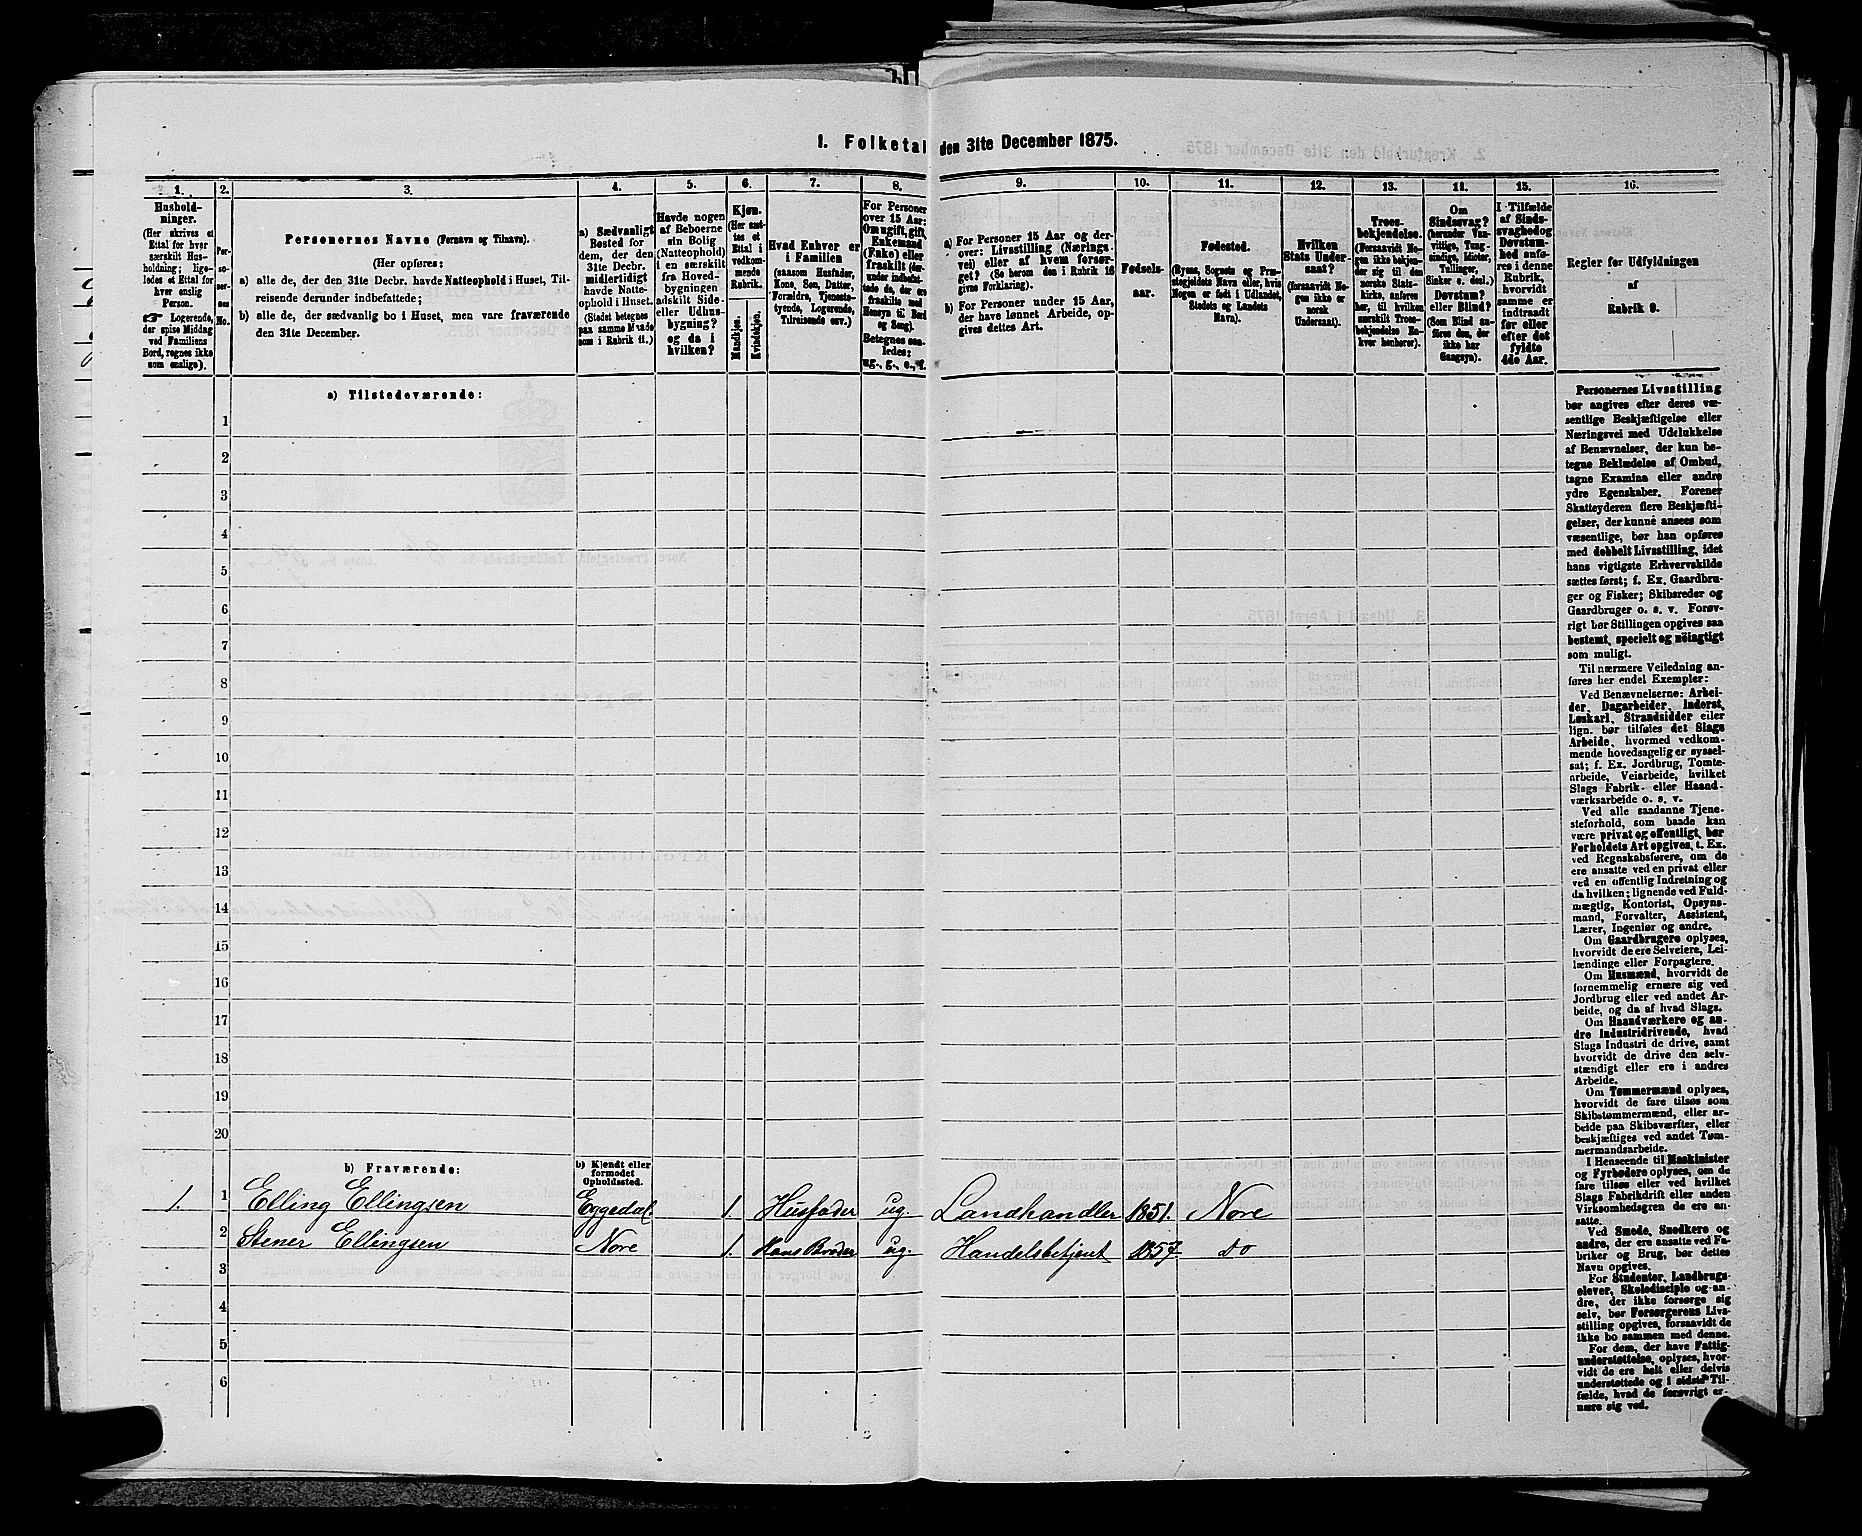 1. Folketal den 31te December 1875.
1. 2. 3. 4. 5. 6. 7. 8. 9. 10. 11. 12. 13. 14. 15. 16.
Hushold-
ninger.
(Her skrives et
Ettal for hver
særskilt Hus-
holdning; lige-
ledes et Ettal for
hver enslig
Person.
☞ Logerende,
der spise Middag
ved Familiens
Bord, regnes ikke
som enslige).
Per-
so-
ner-
nes
No.
Personernes Navne (Fornavn og Tilnavn).
(Her opføres:
a) alle de, der den 31te Decbr. havde Natteophold i Huset, Til-
reisende derunder indbefattede;
b) alle de, der sædvanlig bo i Huset, men vare fraværende
den 31te December.
a) Sædvanligt
Bosted for
dem, der den
31te Decbr.
midlertidigt
havde Natte-
ophold i Huset.
(Stedet betegnes
paa samme Maade
som i Rubrik 11.)
Havde nogen
af Beboerne
sin Bolig
(Natteophold)
i en særskilt
fra Hoved-
bygningen
adskilt Side-
eller Udhus-
bygning?
og da i
hvilken?
Kjøn.
(Her sæt-
tes et
Ettal i
vedkom-
mende
Rubrik.
Mandkjøn.
Kvindekjøn.
Hvad Enhver er
i Familien
(saasom Husfader,
Kone, Søn, Datter,
Forældre, Tjeneste-
tyende, Logerende,
Tilreisende osv.)
For Personer
over 15 Aar:
Om ugift, gift,
Enkemand
(Enke) eller
fraskilt (der-
under indbefat-
tede de, der ere
fraskilte med
Hensyn til Bord
og Seng).
Betegnes saa-
ledes:
ug., g., e., f.
a) For Personer 15 Aar og der-
over: Livsstilling (Nærings-
vei) eller af hvem forsør-
get? (Se herom den i Rubrik 16
givne Forklaring).
b) For Personer under 15 Aar,
der have lønnet Arbeide, op-
gives dettes Art.
Fødsels-
aar.
Fødested.
(Byens, Sognets og Præ-
stegjeldets Navn eller, hvis
Nogen er født i Udlandet,
Stedets og Landets
Navn).
Hvilken
Stats Under-
saat?
(forsaavidt No-
gen ikke er
norsk
Undersaat).
Troes-
bekjendelse.
(Forsaavidt No-
gen ikke bekjen-
der sig til den
norske Stats-
kirke, anføres
her, til hvilken
særskilt Troes-
bekjendelse En-
hver henhører).
Om
Sindssvag?
(herunder Van-
vittige, Tung-
sindige, Idioter,
Tullinger,
Sinker o. desl.)
Døvstum?
eller Blind?
(Som Blind an-
føres den, der
ikke har
Gangsyn).
I Tilfælde
af Sinds-
svaghed og
Døvstum-
hed anfø-
res i denne
Rubrik,
hvorvidt
samme er
indtraadt
før eller
efter det
fyldte
4de Aar.
Regler for Udfyldningen
af
Rubrik 9.
a) Tilstedeværende:
1
2
3
4
5
6
7
8
9
10
11
12
13
14
15
16
17
18
19
20
b) Fraværende: b) Kjendt eller
formodet
Opholdssted.
1. 1 Elling Ellingsen Eggedal 1. Husfader ug. Landhandler 1851. Nore
2 Stener Ellingsen Nore 1. Hans Broder ug. Handelsbetjent 1857 do
3
4
5
6
Personernes Livsstilling
bør angives efter deres væ-
sentlige Beskjæftigelse eller
Næringsvei med Udelukkelse
af Benævnelser, der kun be-
tegne Beklædelse af Ombud,
tagne Examina eller andre
ydre Egenskaber. Forener
Skatteyderen flere Beskjæfti-
gelser, der kunne ansees som
væsentlige, bør han opføres
med dobbelt Livsstilling, idet
hans vigtigste Erhvervskilde
sættes først; f. Ex. Gaardbru-
ger og Fisker; Skibsreder og
Gaardbruger o. s. v. Forøv-
rigt bør Stillingen opgives saa
bestemt, specielt og nöiagtigt
som muligt.
Til nærmere Veiledning an-
føres her endel Exempler:
Ved Benævnelserne: Arbei-
der, Dagarbeider, Inderst,
Løskarl, Strandsidder eller
lign. bør tilføies det Slags
Arbeide, hvormed vedkom-
mende hovedsagelig er syssel-
sat; f. Ex. Jordbrug, Tomte-
arbeide, Veiarbeide, hvilket
Slags Fabrik- eller Haand-
værksarbeide o. s. v.
Ved alle saadanne Tjene-
steforhold, som baade kan
være privat og offentligt, bør
Forholdets Art opgives, t. Ex.
ved Regnskabsførere, om de
ere ansatte ved en privat eller
ved en offentlig Indretning og
da hvilken; lignende ved Fuld-
mægtig, Kontorist, Opsyns-
mand, Forvalter, Assistent,
Lærer, Ingeniør og andre.
Om Gaardbrugere oplyses,
hvorvidt de ere Selveiere, Lei-
lændinge eller Forpagtere.
Om Husmænd, hvorvidt de
fornemmelig ernære sig ved
Jordbrug eller ved andet Ar-
beide, og da af hvad Slags.
Om Haandværkere og an-
dre Industridrivende, hvad
Slags Industri de drive, samt
hvorvidt de drive den selv-
stændigt eller ere i andres
Arbeide.
Om Tømmermænd oplyses,
hvorvidt de fare tilsøs som
Skibstømmermænd, eller ar-
beide paa Skibsværfter, eller
beskjæftiges ved andet Tøm-
mermandsarbeide.
I Henseende til Maskinister
og Fyrbødere oplyses, om de
fare tilsøs eller ved hvilket
Slags Fabrikdrift eller anden
Virksomhedsgren de ere an-
satte.
Ved Smede, Snedkere og
andre, der ere ansatte ved Fa-
briker og Brug, bør dettes
Navn opgives.
For Studenter, Landbrugs-
elever, Skoledisciple og an-
dre, der ikke forsørge sig
selv, bør Forsørgerens Livs-
stilling opgives, forsaavidt de
ikke bo sammen med denne.
For dem, der have Fattig-
understøttelse, oplyses, hvor-
vidt de ere helt eller delvis
understøttede og i sidste Til-
fælde, hvad de forøvrigt er-
nære sig ved.